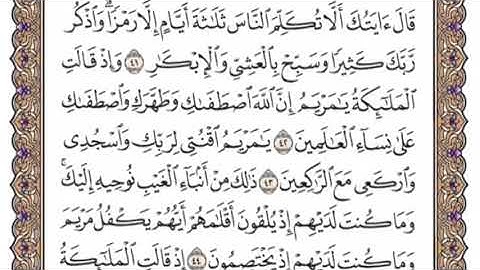 قَالَ ءَايَتُكَ أَلَّا تُكَلِّمَ ٱلنَّاسَ ثَلَٰثَةَ أَيَّامٍ إِلَّا رَمْزٗاۗ وَٱذۡكُر
رَّبَّكَ كَثِيرٗا وَسَبِّحۡ بِٱلۡعَشِيِّ وَٱلۡإِبۡكَٰرِ ٤١ وَإِذۡ قَالَتِ
ٱلۡمَلَٰٓئِكَةُ يَٰمَرۡيَمُ إِنَّ ٱللَّهَ ٱصۡطَفَىٰكِ وَطَهَّرَكِ وَٱصۡطَفَىٰكِ
عَلَىٰ نِسَآءِ ٱلۡعَٰلَمِينَ ٤٢ يَٰمَرۡيَمُ ٱقۡنُتِي لِرَبِّكِ وَٱسۡجُدِي
وَٱرۡكَعِي مَعَ ٱلرَّٰكِعِينَ ٤٣ ذَٰلِكَ مِنۡ أَنۢبَآءِ ٱلۡغَيۡبِ نُوحِيهِ إِلَيۡكَۚ
وَمَا كُنتَ لَدَيۡهِمۡ إِذۡ يُلۡقُونَ أَقۡلَٰمَهُمۡ أَيُّهُمۡ يَكۡفُلُ مَرۡيَمَ
وَمَا كُنتَ لَدَيۡهِمۡ إِذۡ يَخۡتَصِمُونَ ٤٤ إِذۡ قَالَتِ ٱلۡمَلَٰٓئِكَةُ